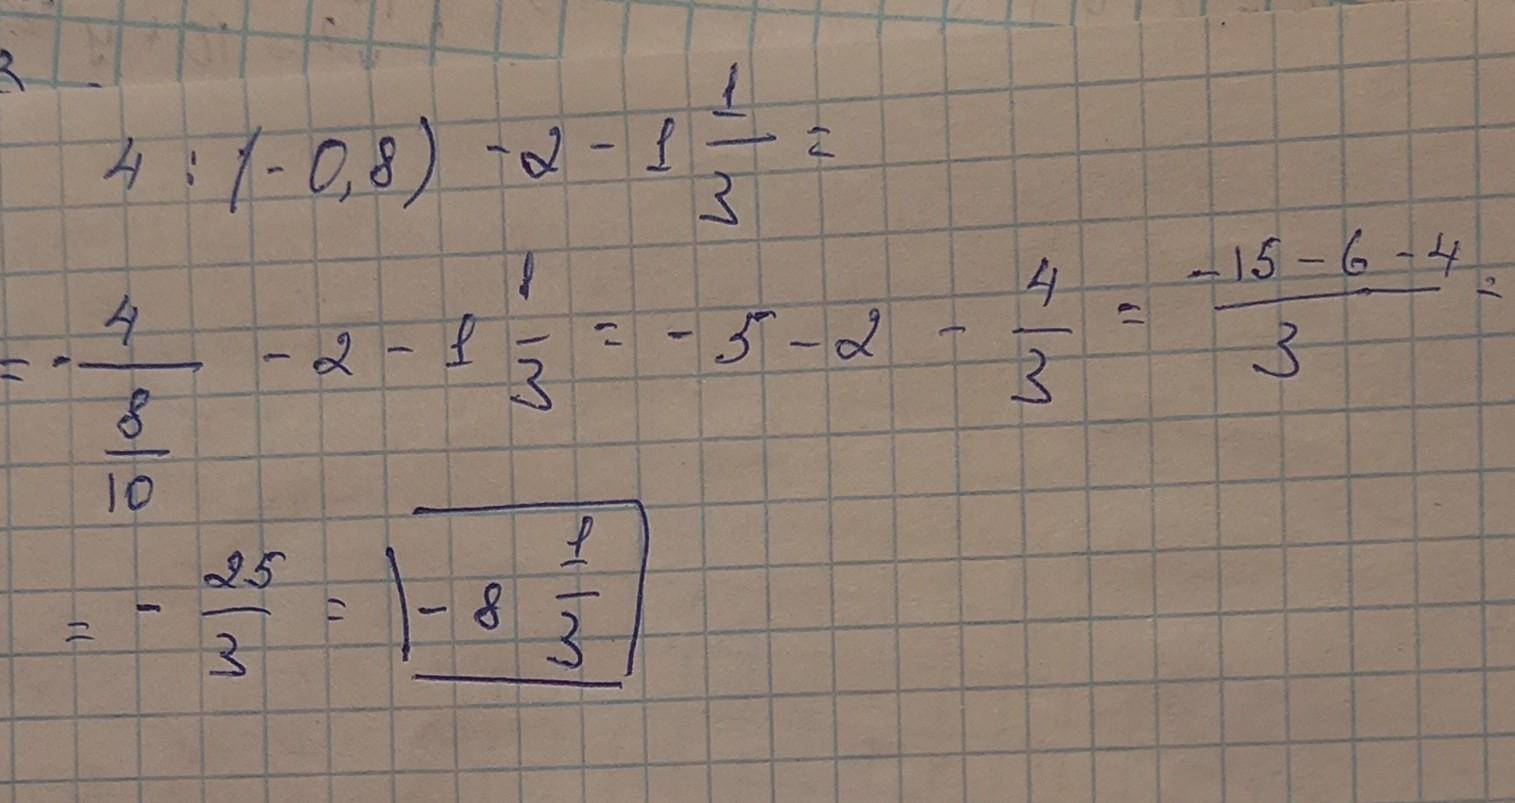 4 : (-0,8) - 2 - 1 1/3 =
= - 4/(8/10) - 2 - 1 1/3 = -5 - 2 - 4/3 = (-15 - 6 - 4)/3 =
= - 25/3 = - 8 1/3